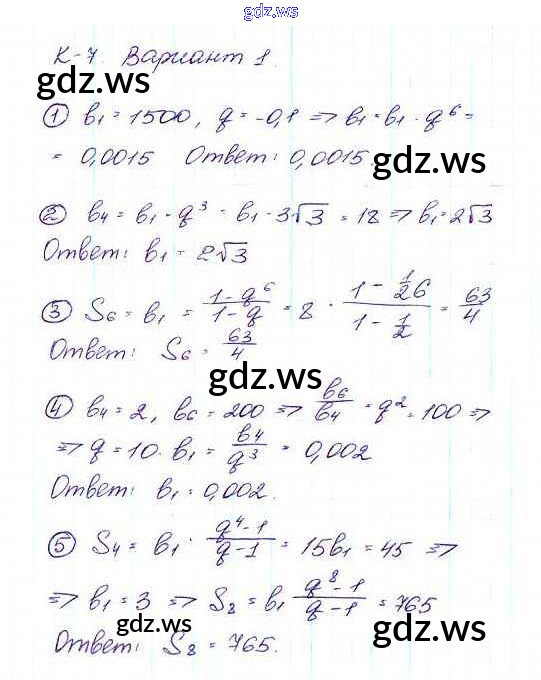 gdz.ws
К-7. Вариант 1.
gdz.ws
① b₁ = 1500, q = -0,1 => b₁ = b₁ · q⁶ =
= 0,0015 Ответ: 0,0015.
gdz.ws
② b₄ = b₁ · q³ = b₁ · 3√3 = 18 => b₁ = 2√3
Ответ: b₁ = 2√3
③ S₆ = b₁ = (1-q⁶)/(1-q) = 8 · (1 - 1/26)/(1 - 1/2) = 63/4
Ответ: S₆ = 63/4
gdz.ws
④ b₄ = 2, b₆ = 200 => b₆/b₄ = q² = 100 =>
=> q = 10. b₁ = b₄/q³ = 0,002
Ответ: b₁ = 0,002.
⑤ S₄ = b₁ · (q⁴-1)/(q-1) = 15b₁ = 45 =>
=> b₁ = 3 => S₈ = b₁ (q⁸-1)/(q-1) = 765
gdz.ws
gdz.ws
Ответ: S₈ = 765.